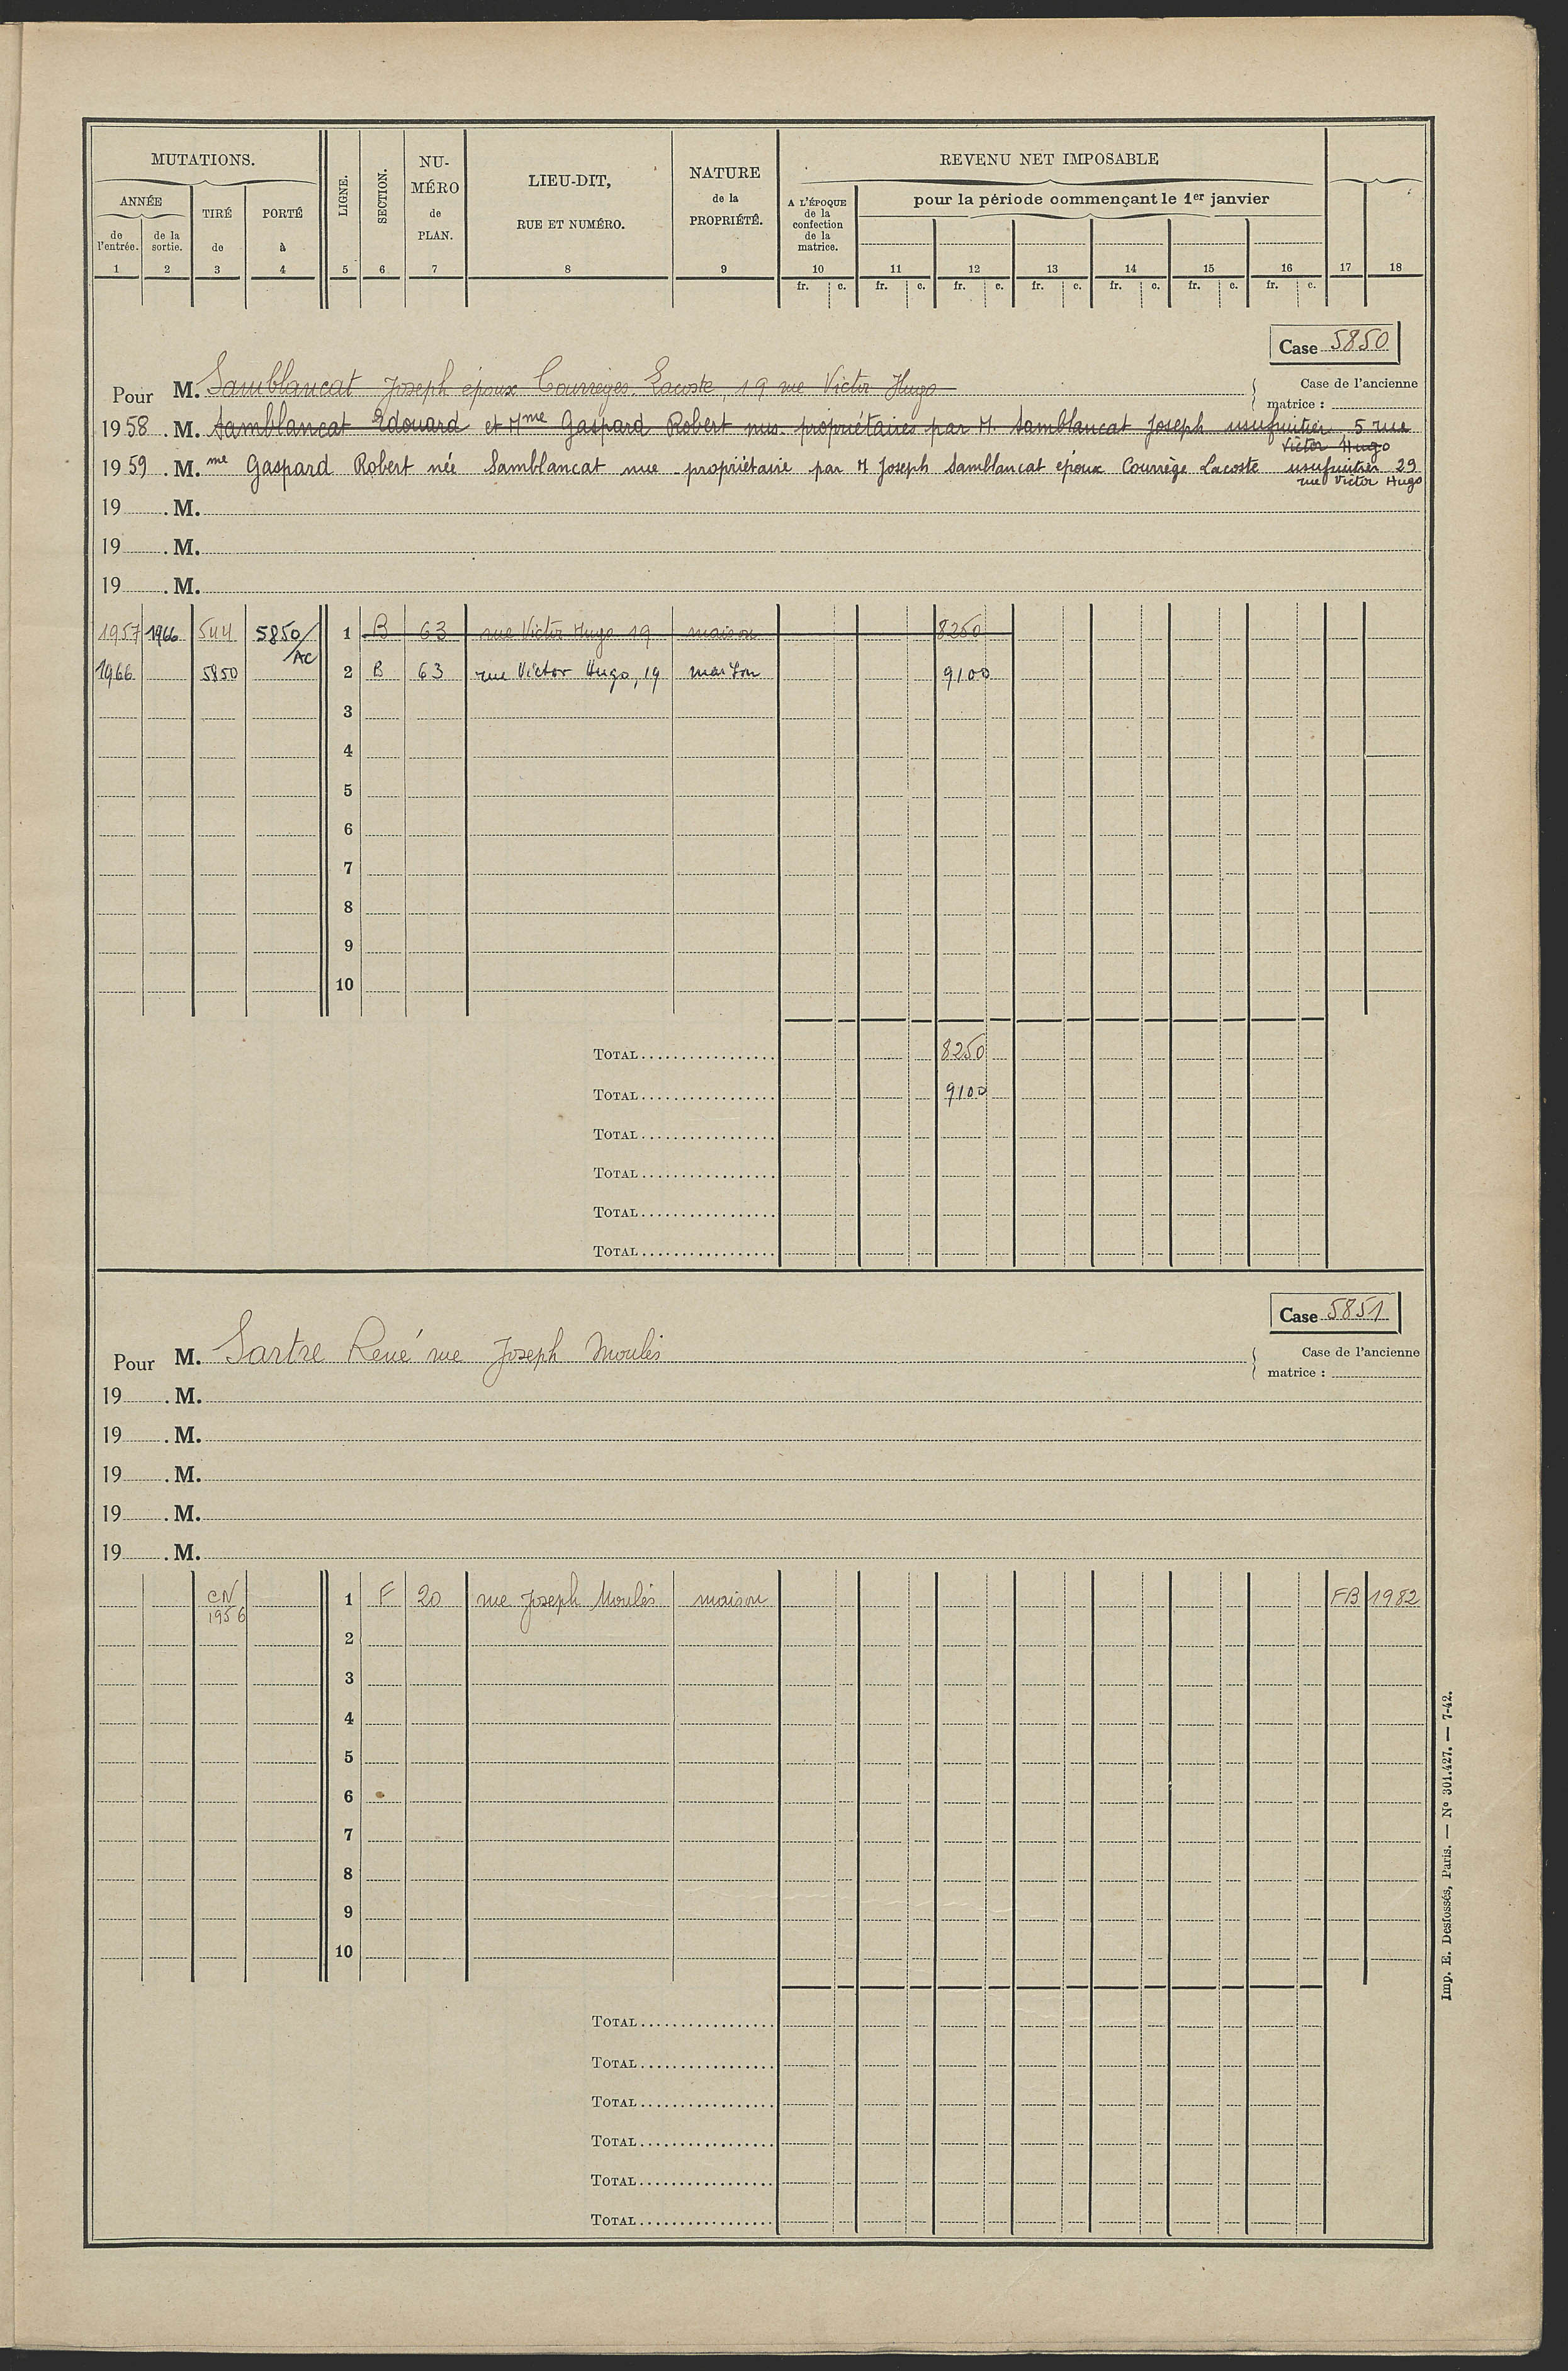 MUTATIONS.
ANNÉE
de l'entrée.
de la sortie.
TIRÉ de
PORTÉ à
LIGNE.
SECTION.
NU-MÉRO de PLAN.
LIEU-DIT, RUE ET NUMÉRO.
NATURE de la PROPRIÉTÉ.
REVENU NET IMPOSABLE
A L'ÉPOQUE de la confection de la matrice.
pour la période commençant le 1er janvier
1 2 3 4 5 6 7 8 9 10 11 12 13 14 15 16 17 18
fr. c. fr. c. fr. c. fr. c. fr. c. fr. c. fr. c.
Case 5850
Pour M. Samblancat Joseph époux Courreges Lacoste, 19 rue Victor Hugo
Case de l'ancienne matrice :
1958. M. Samblancat Edouard et Mme Gaspard Robert nus-propriétaires par M. Samblancat Joseph usufruitier 5 rue
Victor Hugo
1959. M.me Gaspard Robert née Samblancat nue-propriétaire par M Joseph Samblancat époux Courrège Lacoste usufruitier 29
rue Victor Hugo
19 . M.
19 . M.
19 . M.
1957 1966 544 5850/AC 1 B 63 rue Victor Hugo 19 maison 8250
1966 5850 2 B 63 rue Victor Hugo, 19 maison 9100
3
4
5
6
7
8
9
10
TOTAL 8250
TOTAL 9100
TOTAL
TOTAL
TOTAL
TOTAL
Case 5851
Pour M. Sartre René rue Joseph Moulès
Case de l'ancienne matrice :
19 . M.
19 . M.
19 . M.
19 . M.
19 . M.
CN 1956 1 F 20 rue Joseph Moulès maison FB 1982
2
3
4
5
6
7
8
9
10
TOTAL
TOTAL
TOTAL
TOTAL
TOTAL
TOTAL
Imp. E. Desfossés, Paris. — N° 301.427. — 7-42.